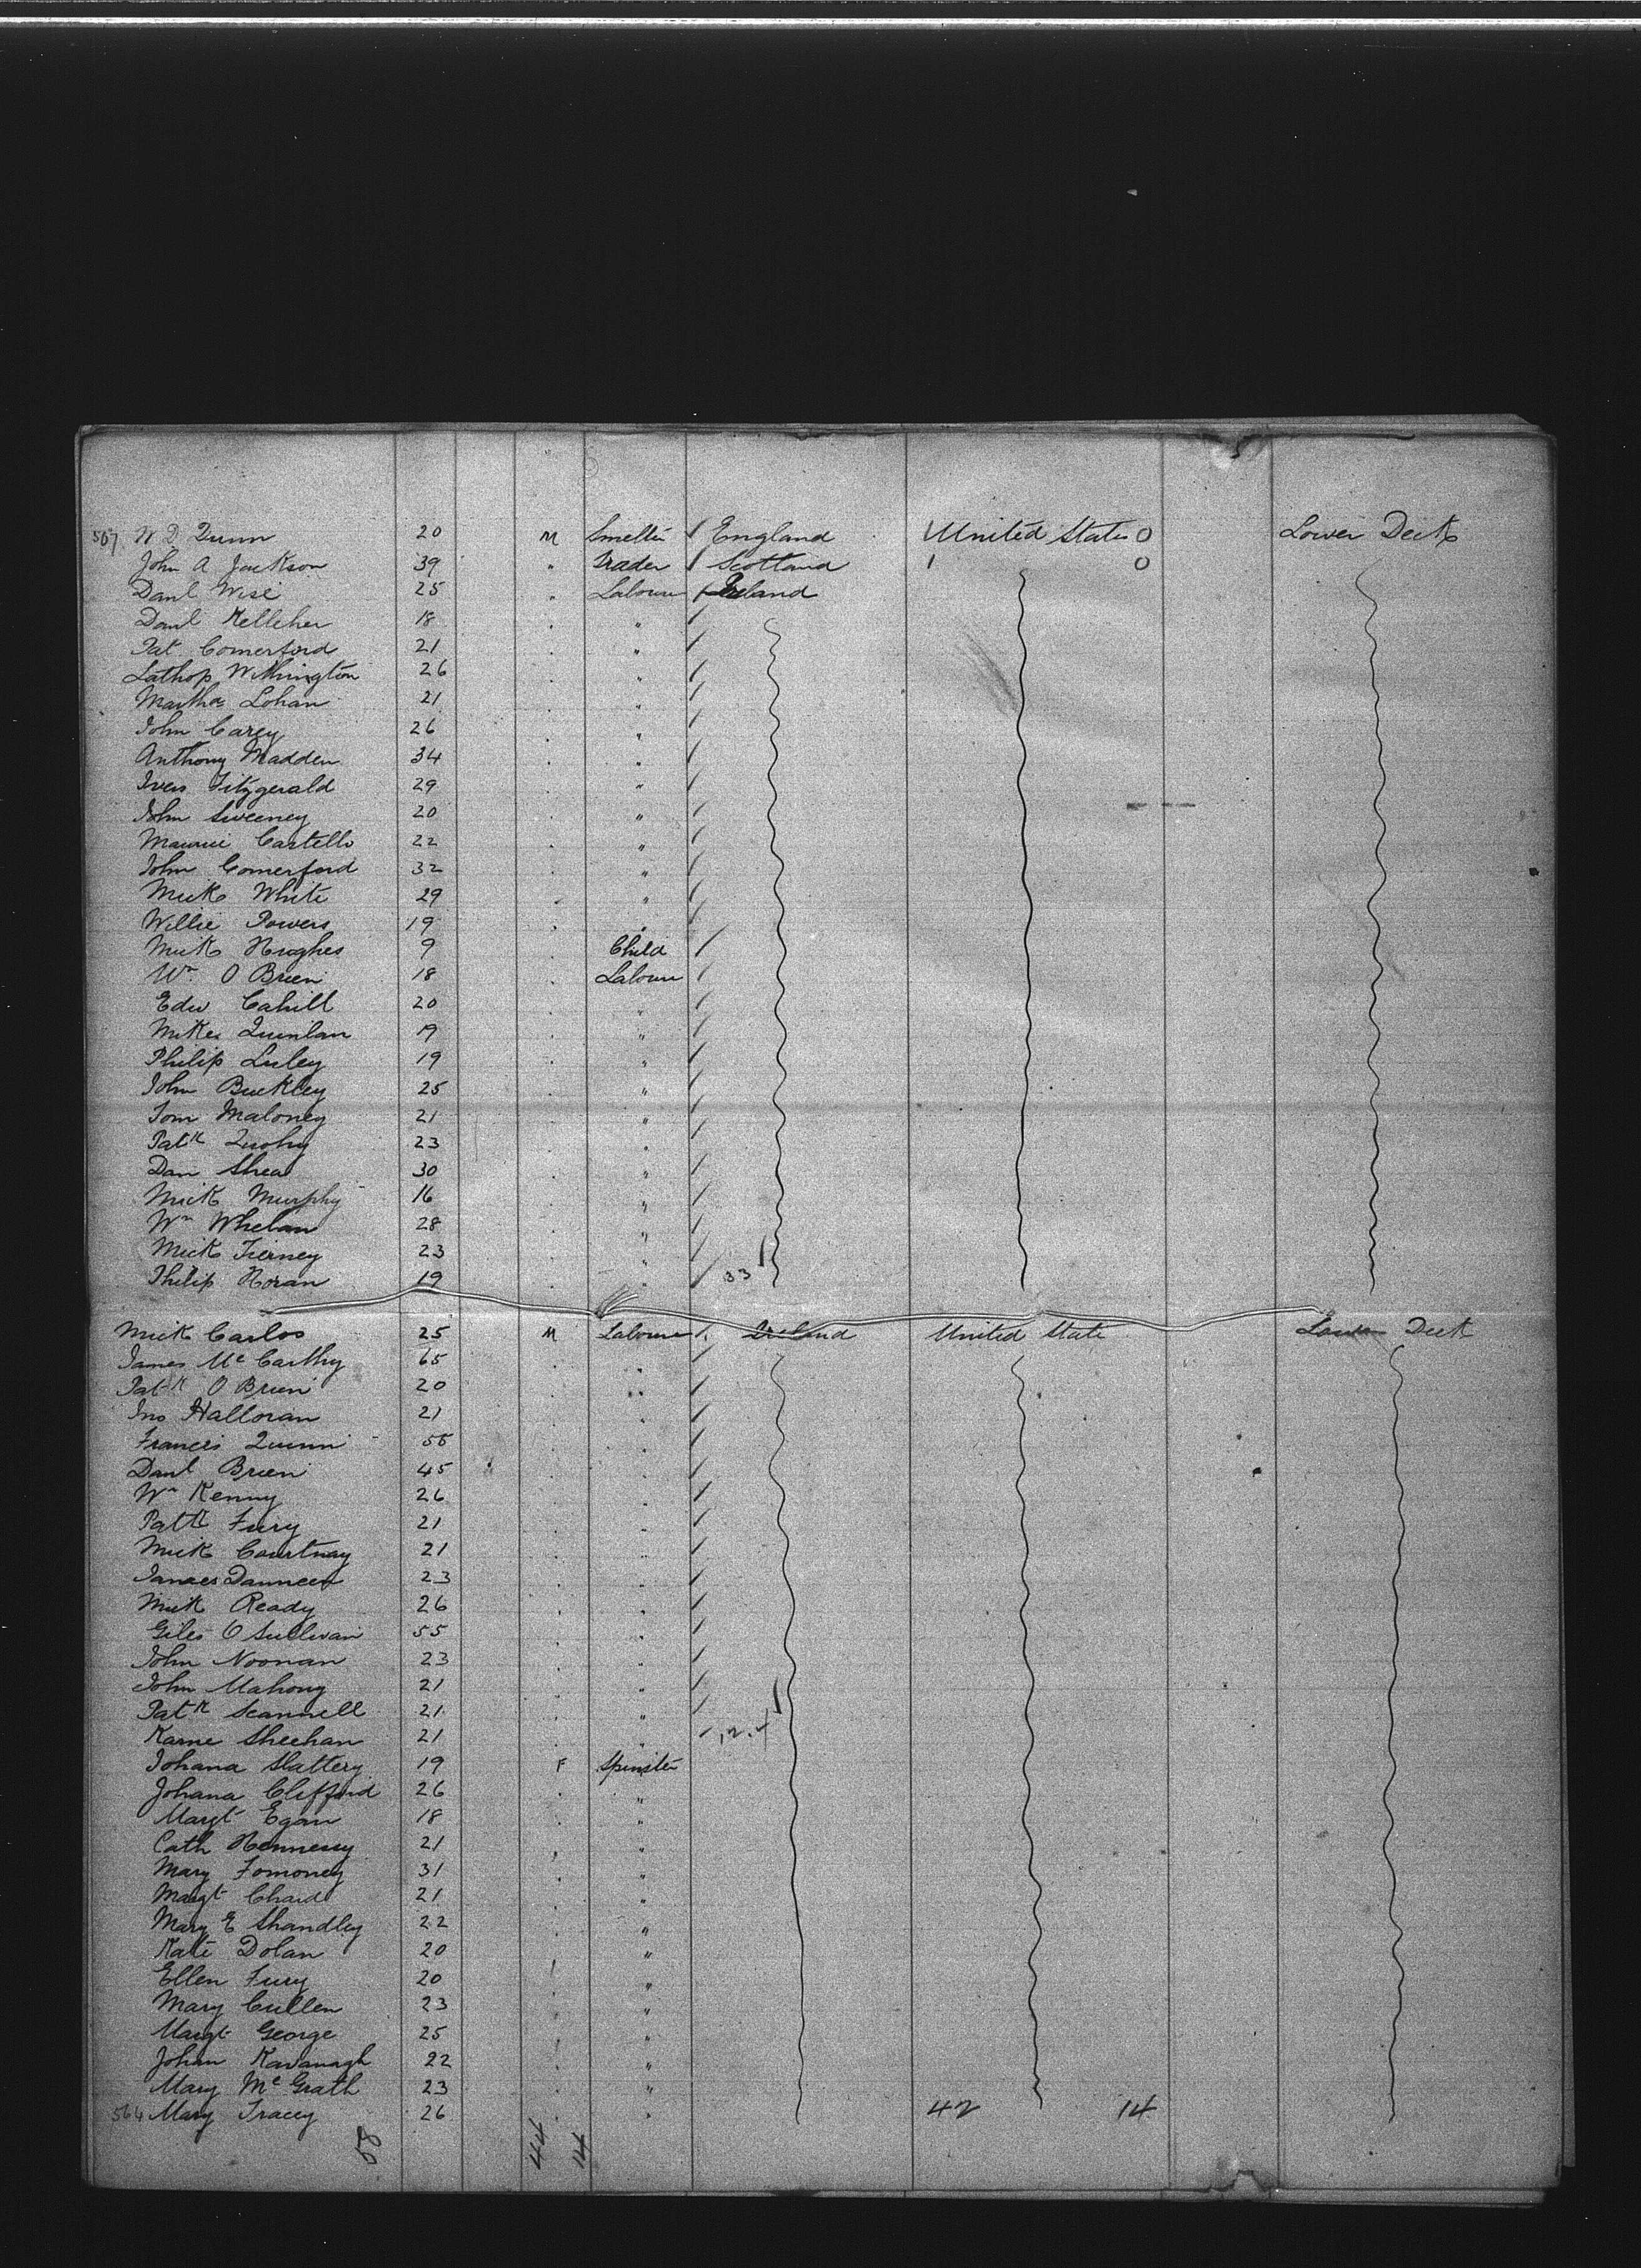 507 W D Quinn 20 M Smelter England United States 0 Lower Deck
John A Jackson 39 " Trader Scotland 0
Danl Wise 25 " Labourer Ireland
Danl Kelleher 18 "
Pat Comerford 21 "
Lathop Withington 26 "
Martha Lohan 21 "
John Carey 26 "
Anthony Madden 34 "
Ivers Fitzgerald 29 "
John Sweeney 20 "
Maurice Costello 22 "
John Comerford 32 "
Mick White 29 "
Willie Powers 19 "
Mick Hughes 9 Child
Wm O Brien 18 Labourer
Edw Cahill 20 "
Mike Quinlan 19 "
Philip Luley 19 "
John Buckley 25 "
Tom Maloney 21 "
Patk Quohy 23 "
Dan Shea 30 "
Mick Murphy 16 "
Wm Whelan 28 "
Mick Tierney 23 "
Philip Horan 19 " 33
Mick Carlos 25 M Labourer Ireland United State Lower Deck
James McCarthy 65 "
Patk O Brien 20 "
Jno Halloran 21 "
Francis Quinn 55 "
Danl Brien 45 "
Wm Kenny 26 "
Patk Fury 21 "
Mick Courtnay 21 "
James Danneen 23 "
Mick Ready 26 "
Giles O Sullivan 55 "
John Noonan 23 "
John Mahony 21 "
Patk Scannell 21 "
Karne Sheehan 21 "
Johana Slattery 19 F Spinster
Johana Clifford 26 "
Margt Egan 18 "
Cath Hennessy 21 "
Mary Tomoney 31 "
Margt Chard 21 "
Mary E Shandley 22 "
Kate Dolan 20 "
Ellen Fury 20 "
Mary Cullen 23 "
Margt George 25 "
Johan Kavanagh 22 "
Mary McGrath 23 "
564 Mary Tracey 26 " 42 14
58 44 14